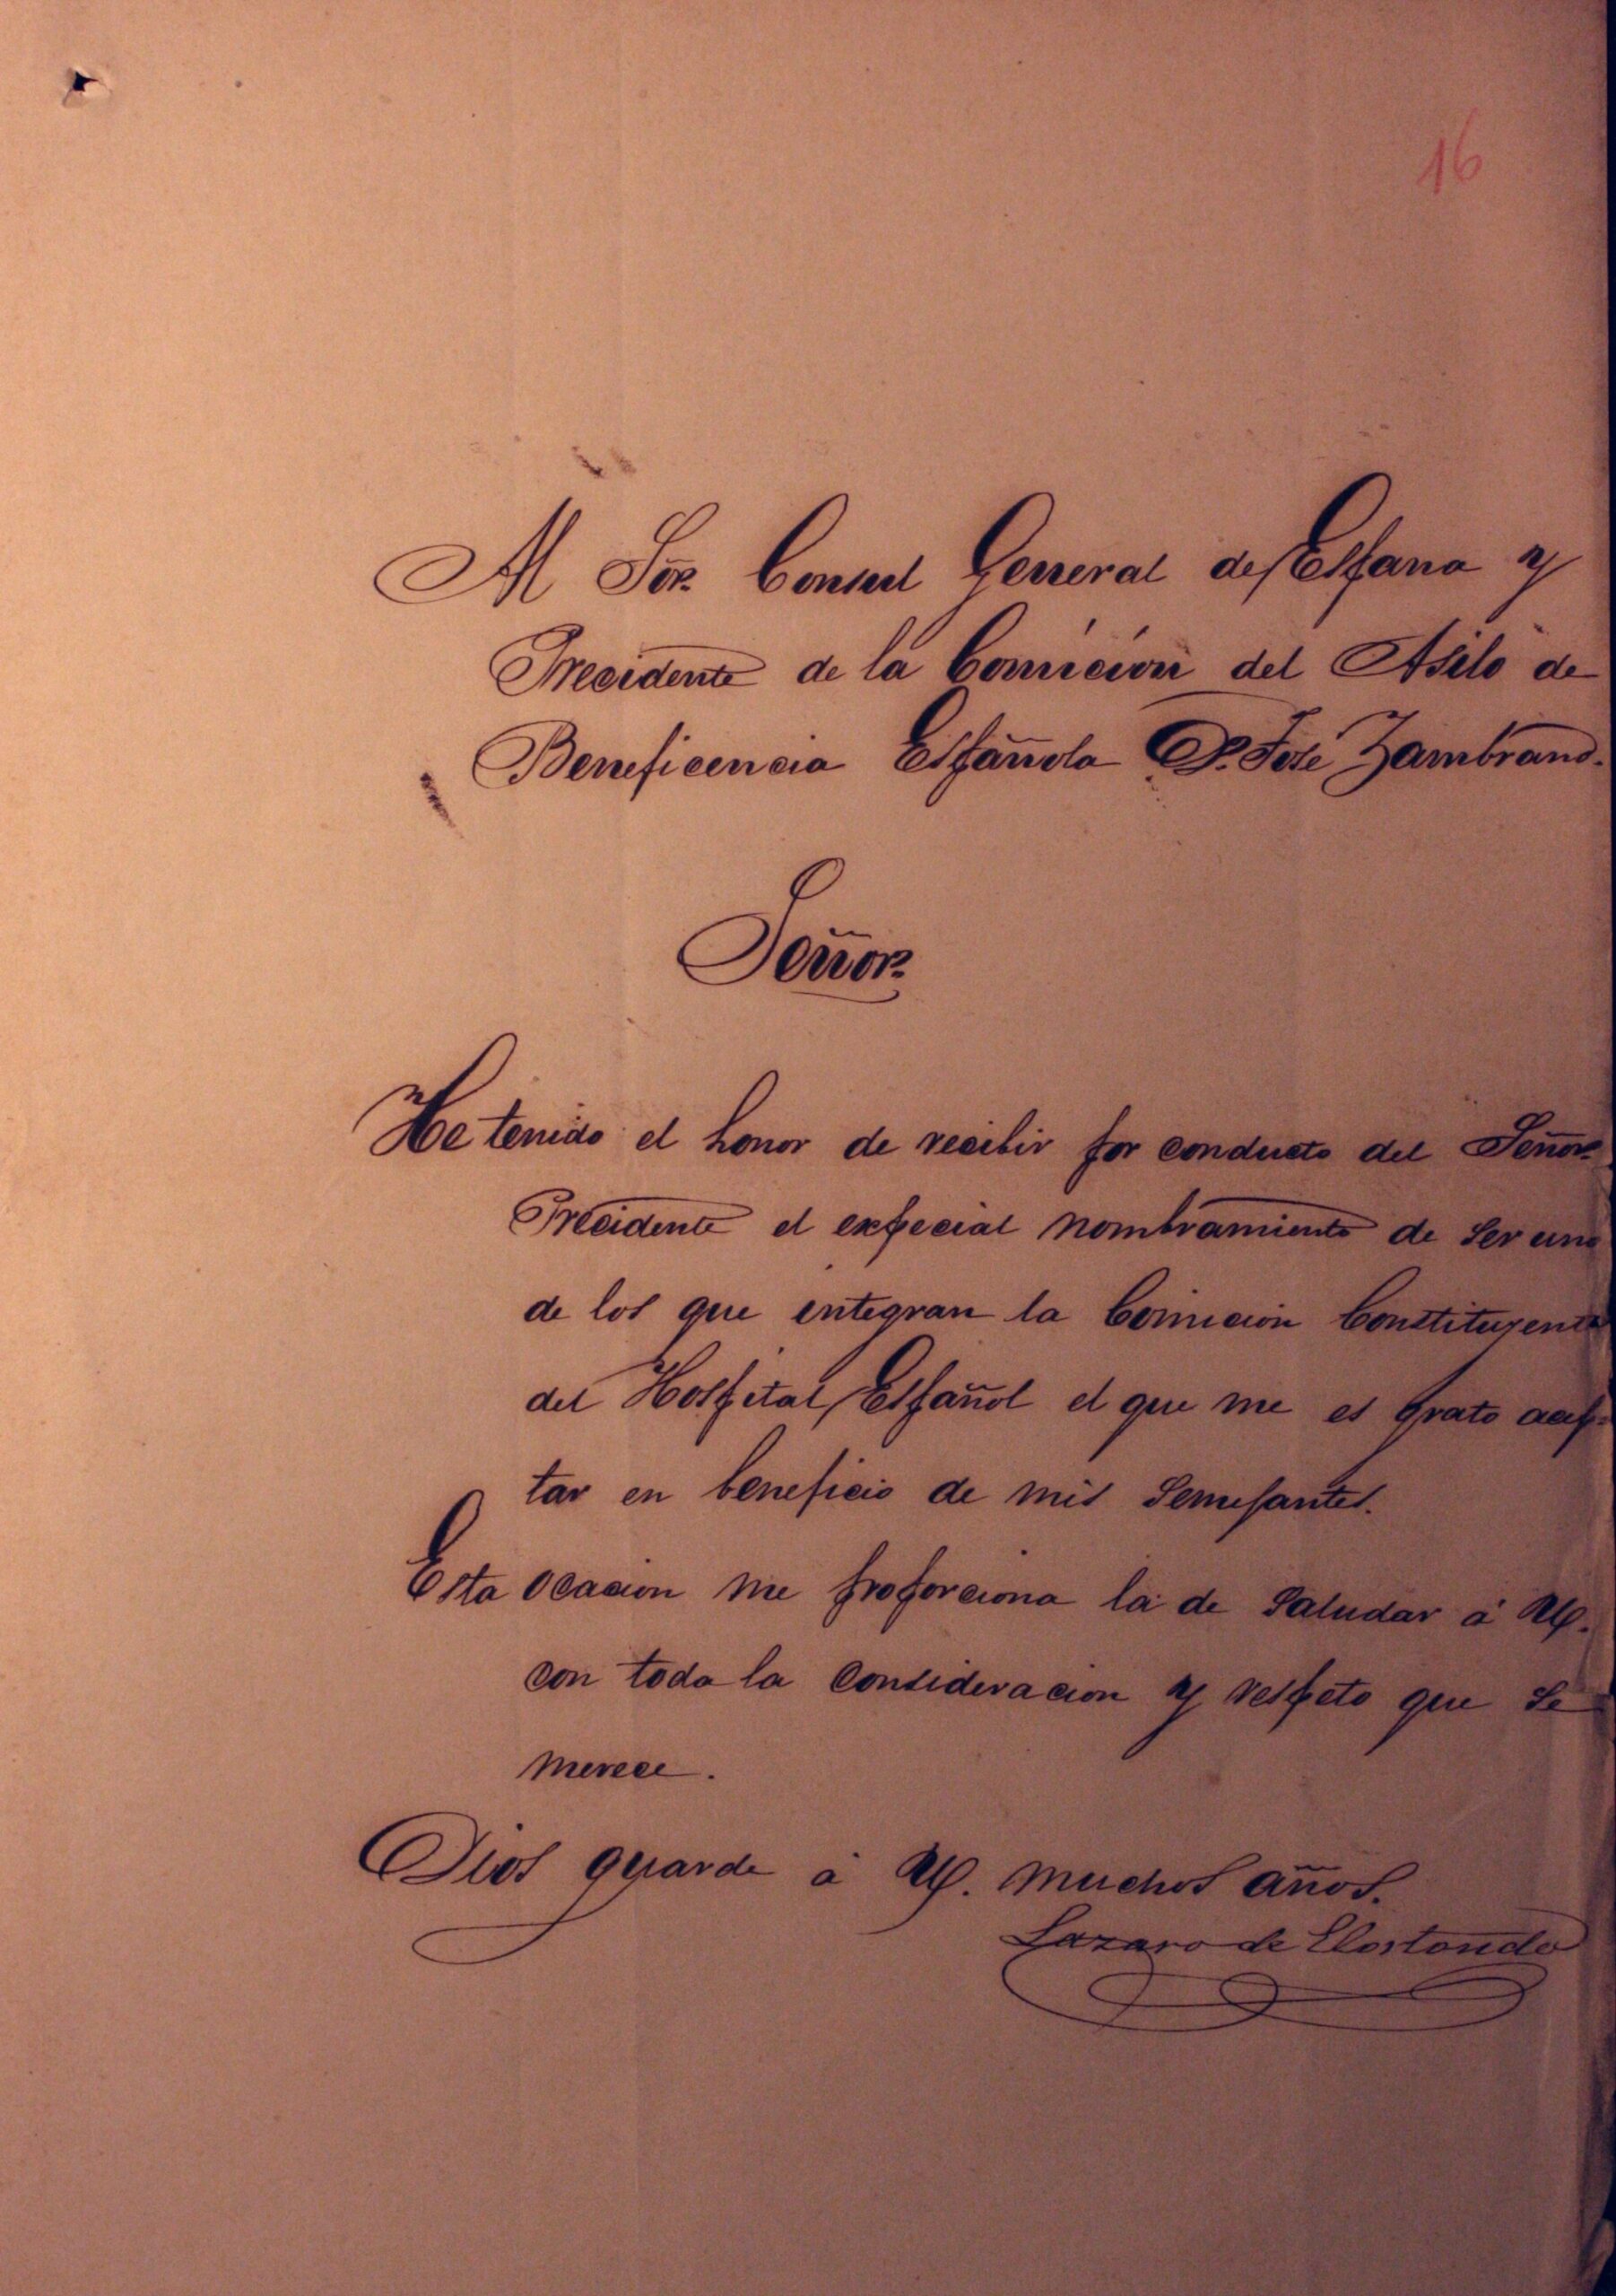 16
Al Sõr. Consul General de España y
Precidente de la Comición del Asilo de
Beneficencia Española D. José Zambrano.
Señor.
He tenido el honor de recibir por conducto del Señor
Precidente el expecial nombramiento de ser uno
de los que integran la Comición Constituyente
del Hospital Español el que me es grato acep-
tar en beneficio de mis semejantes.
Esta ocacion me proporciona la de saludar á U.
con toda la consideracion y respeto que se
merece.
Dios guarde á U. muchos años.
Lazaro de Elostondo